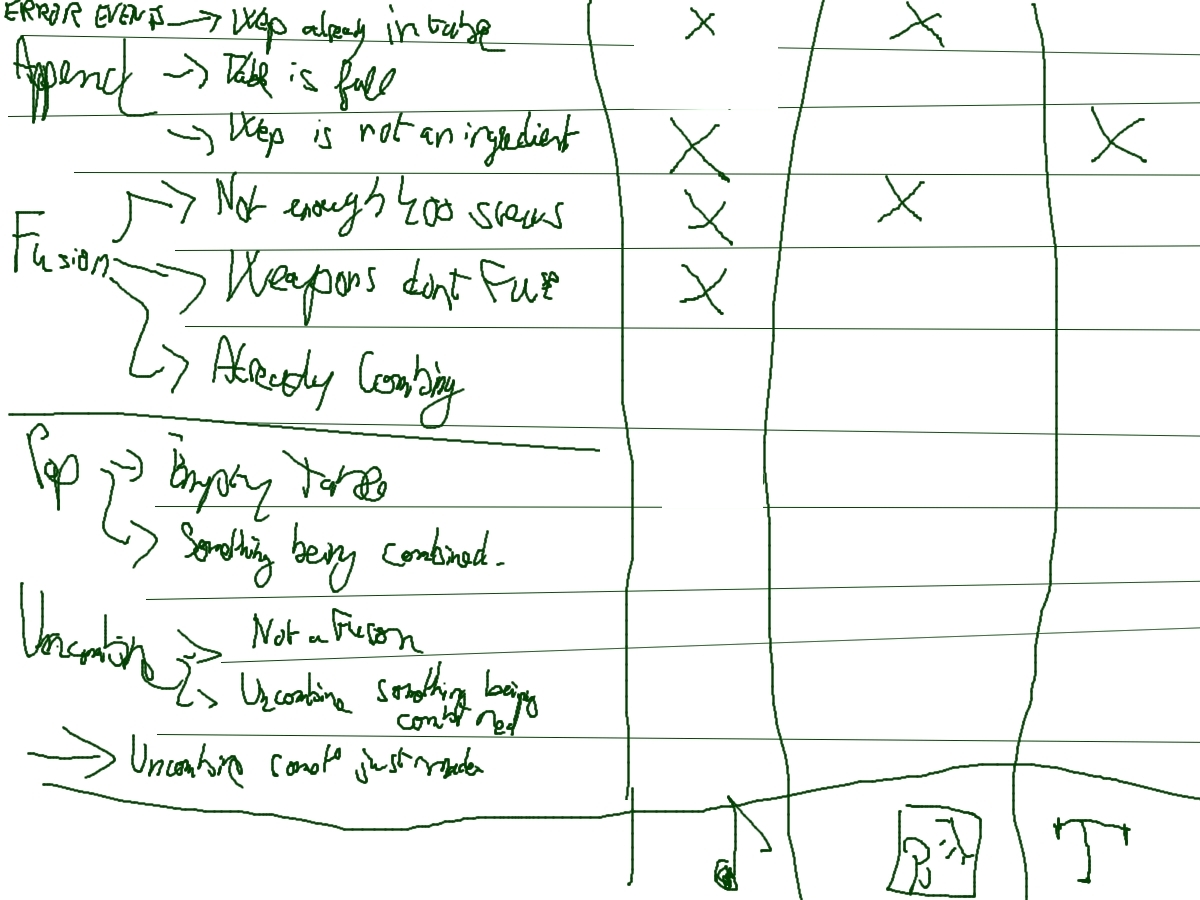 ERROR EVENTS → Wep already in table X X
Append → Table is full
→ Wep is not an ingredient X X
Fusion → Not enough 400 screws X X
→ Weapons dont Fuse X
→ Already Combing
Pop → Empty Table
→ Something being combined.
Uncombine → Not a Fusion
→ Uncombine something being
combined
→ Uncombine just made
T